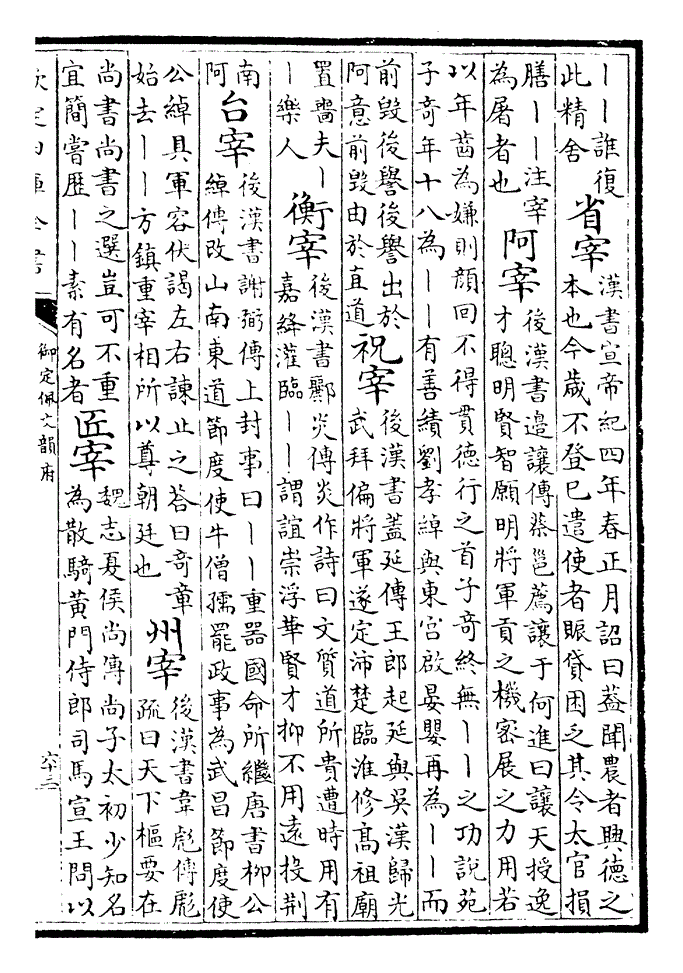 ｜｜誰復
此精舍
省宰
漢書宣帝紀四年春正月詔曰蓋聞農者興德之
本也今歲不登已遣使者賑貸困乏其令太官損
膳｜｜注宰
為屠者也
阿宰
後漢書邊讓傳蔡邕薦讓于何進曰讓天授逸
才聰明賢智願明將軍貢之機密展之力用若
以年齒為嫌則顏回不得貫德行之首子奇終無｜｜之功說苑
子奇年十八為｜｜有善績劉孝綽與東宮啟晏嬰再為｜｜而
前毀後譽後譽出於
阿意前毀由於直道
祝宰
後漢書蓋延傳王郎起延與吳漢歸光
武拜偏將軍遂定沛楚臨淮修高祖廟
置嗇夫｜
｜樂人
衡宰
後漢書酈炎傳炎作詩曰文質道所貴遭時用有
嘉絳灌臨｜｜謂誼崇浮華賢才抑不用遠投荆
南
阿
台宰
後漢書謝弼傳上封事曰｜｜重器國命所繼唐書柳公
綽傳改山南東道節度使牛僧孺罷政事為武昌節度使
公綽具軍容伏謁左右諫止之答曰奇章
始去｜｜方鎮重宰相所以尊朝廷也
州宰
後漢書韋彪傳彪
疏曰天下樞要在
尚書尚書之選豈可不重
宜簡嘗歷｜｜素有名者
匠宰
魏志夏侯尚傳尚子太初少知名
為散騎黃門侍郎司馬宣王問以
欽定四庫全書
御定佩文韻府
六十三